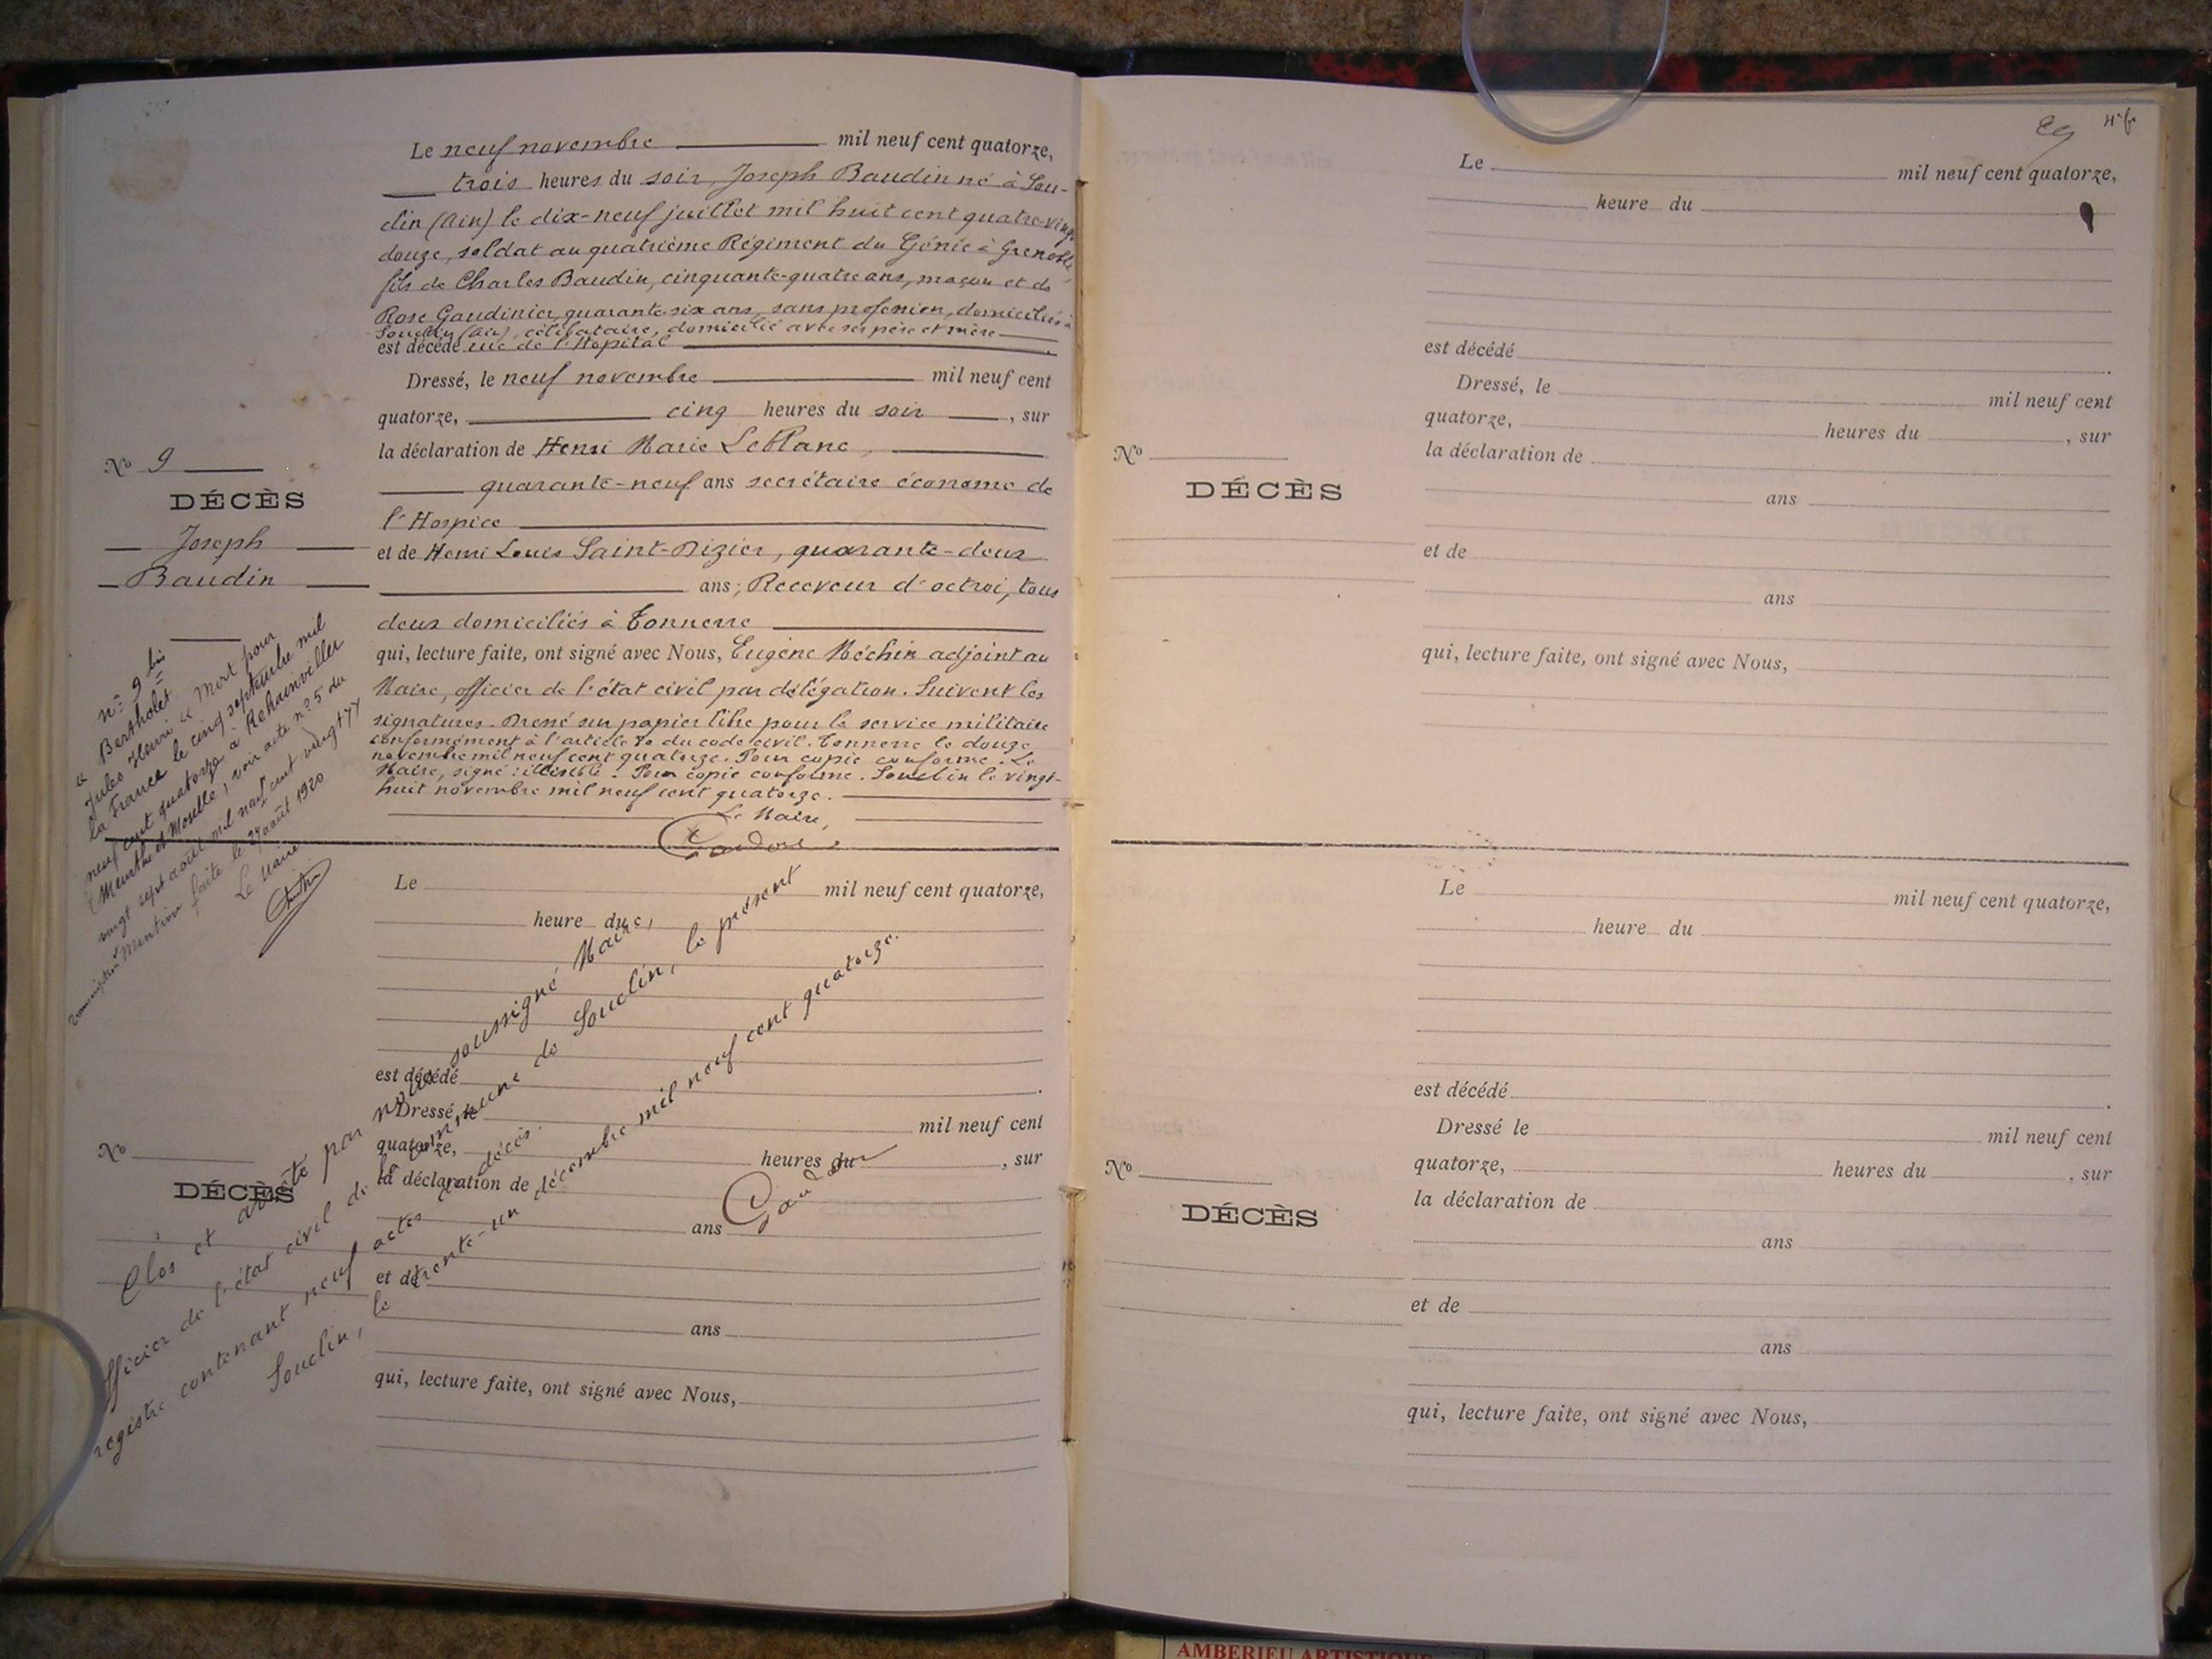 Le neuf novembre mil neuf cent quatorze,
trois heures du soir, Joseph Baudin né à Sou-
clin (Ain) le dix-neuf juillet mil huit cent quatre-vingt
douze, soldat au quatrième Régiment du Génie à Grenoble
fils de Charles Baudin, cinquante-quatre ans, maçon et de
Rose Gaudinier, quarante-six ans, sans profession, domiciliés à
Souclin (Ain), célibataire, domicilié avec ses père et mère
est décédé rue de l'Hopital
Dressé, le neuf novembre mil neuf cent
quatorze, cinq heures du soir, sur
la déclaration de Henri Marie Leblanc,
quarante-neuf ans secrétaire économe de
l'Hospice
et de Henri Louis Saint-Dizier, quarante-deux
ans; Receveur d'octroi, tous
deux domiciliés à Tonnerre
qui, lecture faite, ont signé avec Nous, Eugène Méchin adjoint au
Maire, officier de l'état civil par délégation. Suivent les
signatures. Dressé sur papier libre pour le service militaire
conformément à l'article 80 du code civil. Tonnerre le douze
novembre mil neuf cent quatorze. Pour copie conforme. Le
Maire, signé : illisible. Pour copie conforme. Souclin le vingt-
huit novembre mil neuf cent quatorze.
Le Maire,
No 9
DÉCÈS
Joseph
Baudin
n° 9 bis
"Bertholet
Jules Henri" "Mort pour
la France" le cinq septembre mil
neuf cent quatorze à Rehainviller
(Meurthe et Moselle), voir acte n° 5 du
vingt sept août mil neuf cent vingt
Mention faite le 27 août 1920
Le Maire
Le mil neuf cent quatorze,
heure du
est décédé
Dressé, le mil neuf cent
quatorze, heures du , sur
la déclaration de
ans
et de
ans
qui, lecture faite, ont signé avec Nous,
No
DÉCÈS
Clos et arrêté par nous soussigné Maire,
officier de l'état civil de la commune de Souclin, le présent
registre contenant neuf actes de décès.
Souclin, le trente-un décembre mil neuf cent quatorze.
Le mil neuf cent quatorze,
heure du
est décédé
Dressé, le mil neuf cent
quatorze, heures du , sur
la déclaration de
ans
et de
ans
qui, lecture faite, ont signé avec Nous,
No
DÉCÈS
Le mil neuf cent quatorze,
heure du
est décédé
Dressé le mil neuf cent
quatorze, heures du , sur
la déclaration de
ans
et de
ans
qui, lecture faite, ont signé avec Nous,
No
DÉCÈS
AMBERIEU ARTISTIQUE